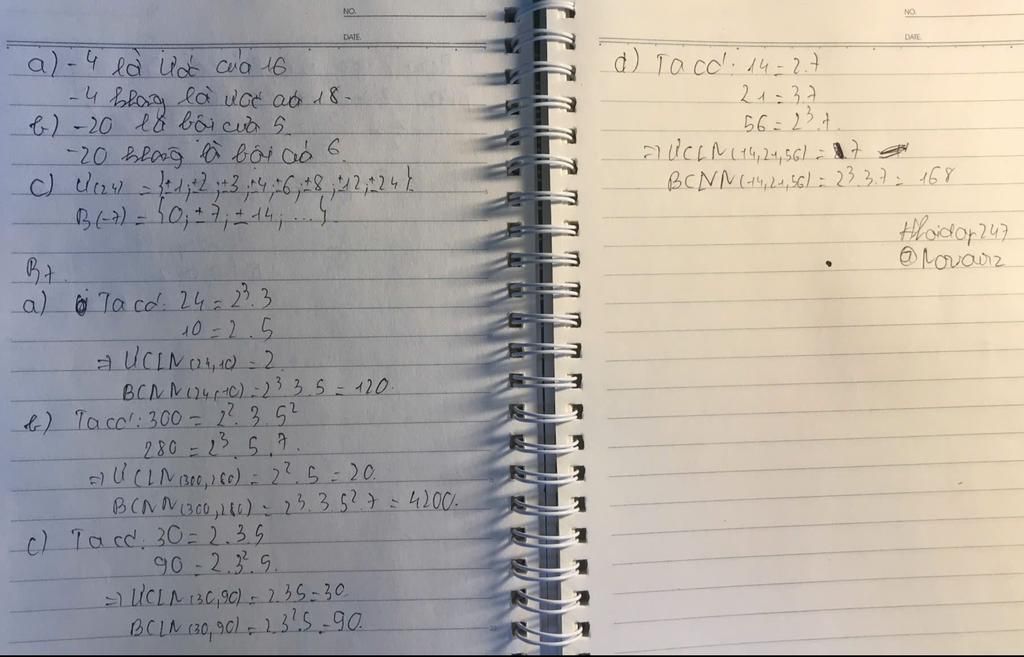 NO.
DATE.
a) -4 là ước của 16
-4 không là ước của 18.
b) -20 là bội của 5.
-20 không là bội của 6.
c) Ư(24) = {±1;±2;±3;±4;±6;±8;±12;±24}.
B(-7) = {0;±7;±14;...}.
B7.
a) Ta có: 24 = 2³.3
10 = 2.5
⇒ ƯCLN(24,10) = 2.
BCNN(24,10) = 2³.3.5 = 120.
b) Ta có: 300 = 2².3.5²
280 = 2³.5.7.
⇒ ƯCLN(300,280) = 2².5 = 20.
BCNN(300,280) = 2³.3.5².7 = 4200.
c) Ta có: 30 = 2.3.5
90 = 2.3².5.
⇒ ƯCLN(30,90) = 2.3.5 = 30
BCLN(30,90) = 2.3².5 = 90.
NO.
DATE.
d) Ta có: 14 = 2.7
21 = 3.7
56 = 2³.7.
⇒ ƯCLN(14,21,56) = 7
BCNN(14,21,56) = 2³.3.7 = 168
#hoidap247